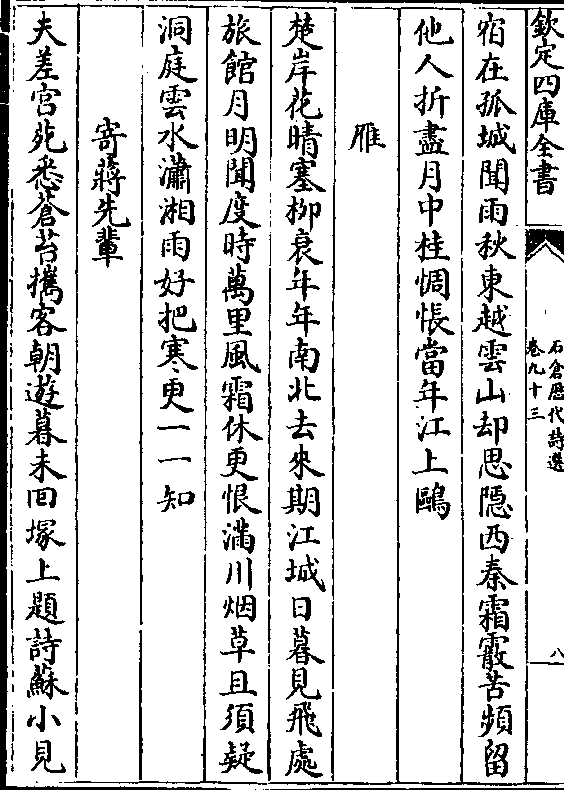 欽定四庫全書
石倉歴代詩選
卷九十三
八
宿在孤城聞雨秋東越雲山却思隠西秦霜霰苦頻留
他人折盡月中桂惆悵當年江上鷗
雁
楚岸花晴塞柳衰年年南北去來期江城日暮見飛處
旅館月明聞度時萬里風霜休更恨滿川烟草且須疑
洞庭雲水瀟湘雨好把寒更一一知
寄蔣先輩
夫差宫苑悉蒼苔攜客朝遊暮未回塚上題詩蘇小見